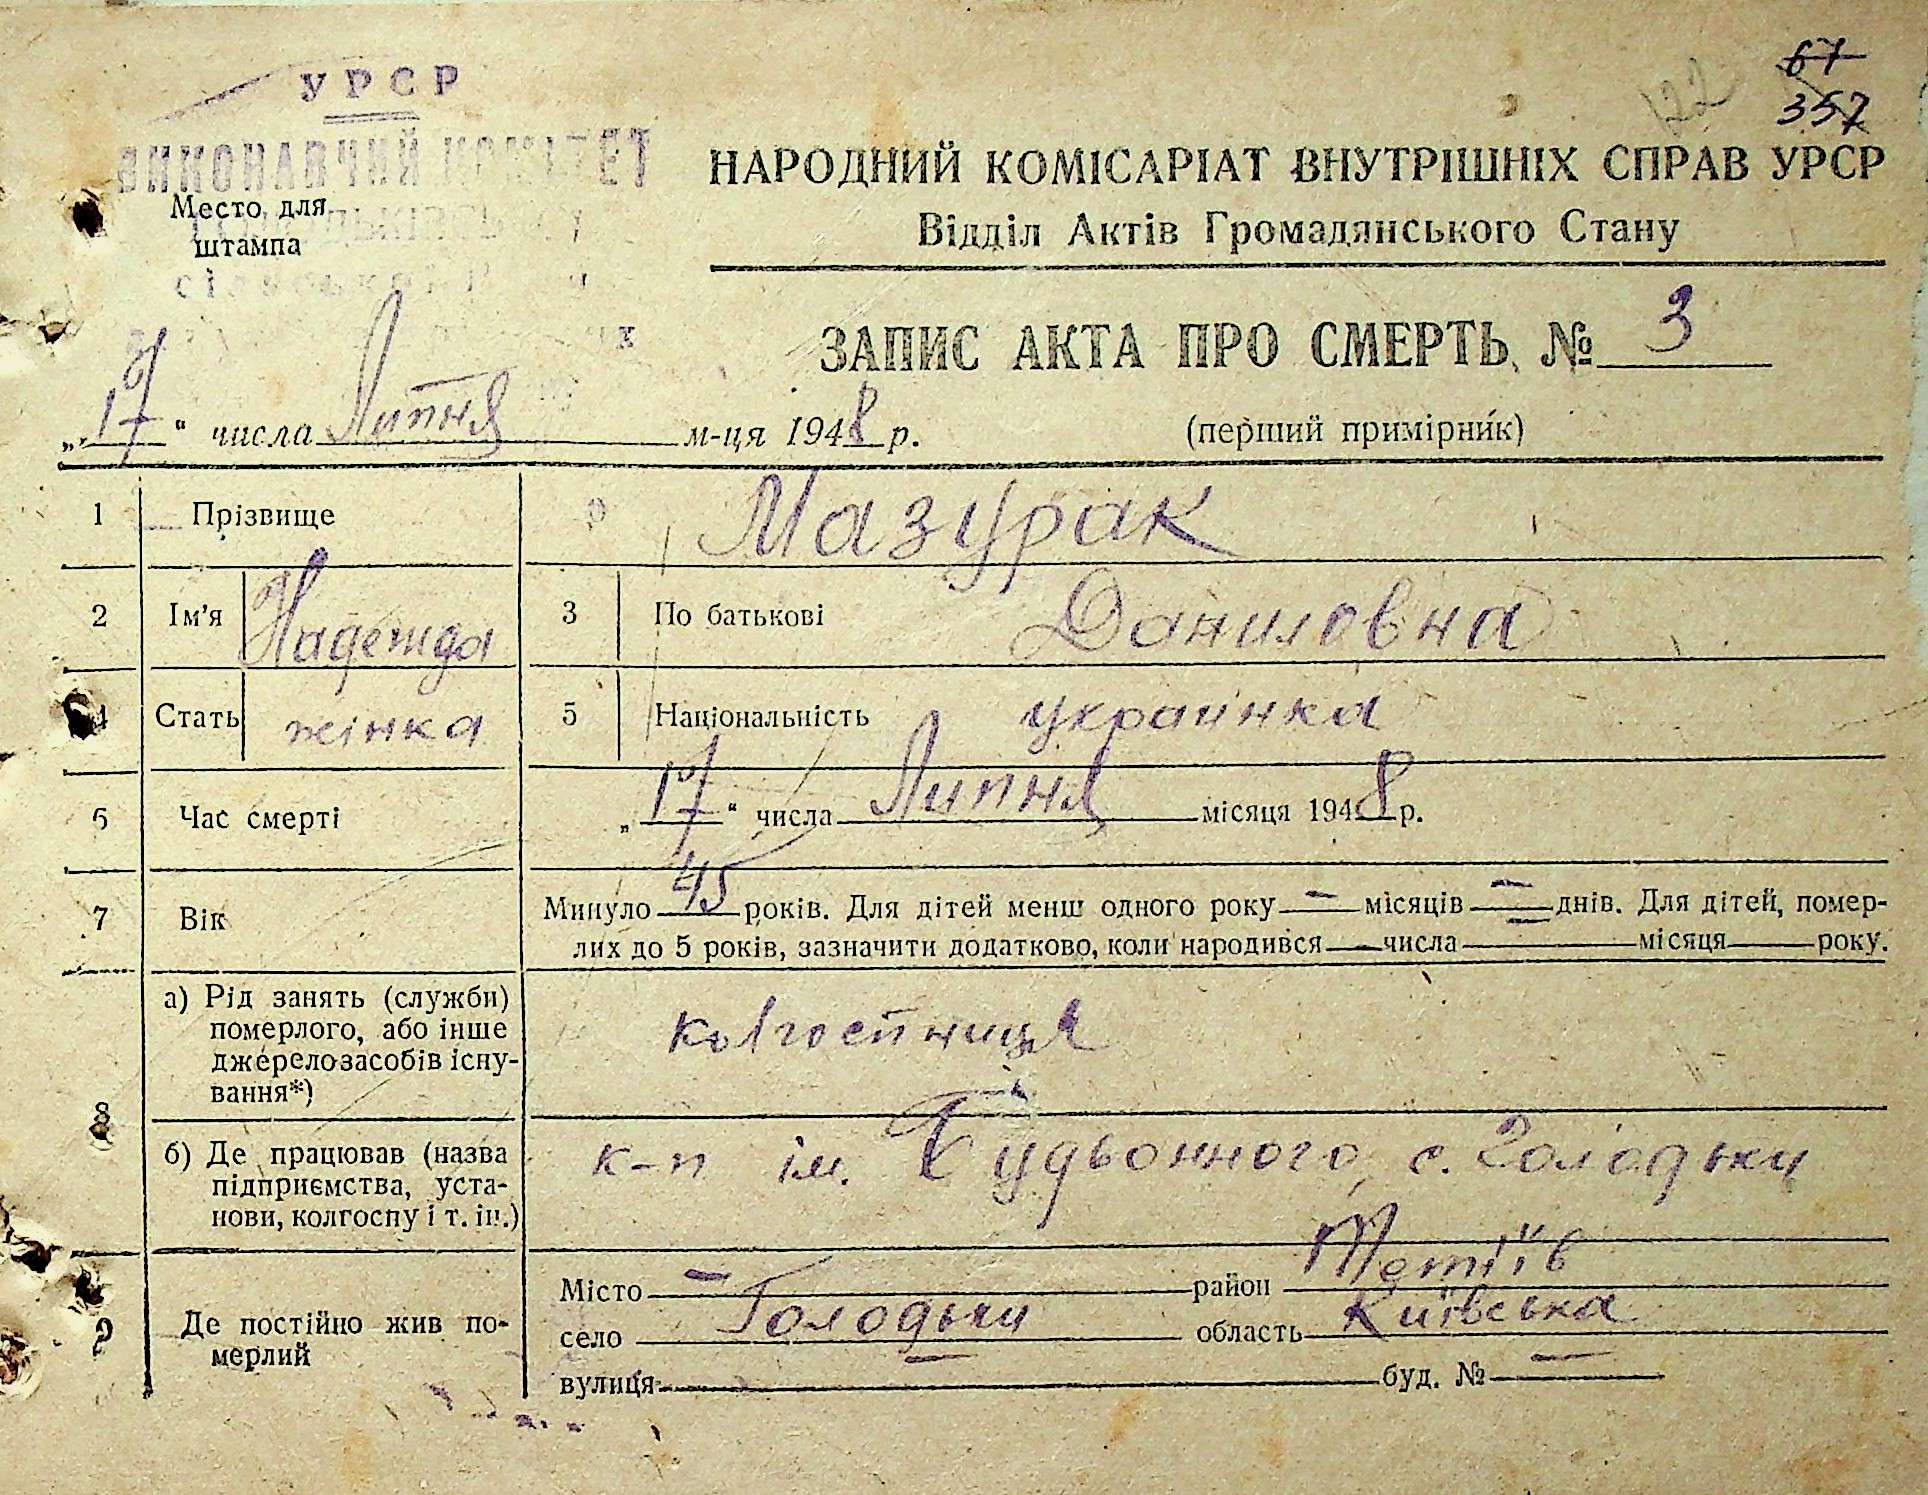 67
357
122
УРСР
ВИКОНАВЧИЙ КОМІТЕТ
Место для
штампа
НАРОДНИЙ КОМІСАРІАТ ВНУТРІШНІХ СПРАВ УРСР
Відділ Актів Громадянського Стану
ЗАПИС АКТА ПРО СМЕРТЬ № 3
„17“ числа Липня м-ця 1948 р.
(перший примірник)
1 Прізвище Мазурак
2 Ім'я Надежда 3 По батькові Даниловна
4 Стать жінка 5 Національність украінка
6 Час смерті „17“ числа Липня місяця 1948 р.
7 Вік Минуло 45 років. Для дітей менш одного року — місяців — днів. Для дітей, помер-
лих до 5 років, зазначити додатково, коли народився — числа — місяця — року.
8 а) Рід занять (служби)
померлого, або інше
джерело засобів існу-
вання*)
колгоспниця
б) Де працював (назва
підприємства, уста-
нови, колгоспу і т. ін.)
к-п ім. Будьонного, с. Голодьки
9 Де постійно жив по-
мерлий
Місто — район Тетіїв
село Голодьки область Київська
вулиця — буд. № —